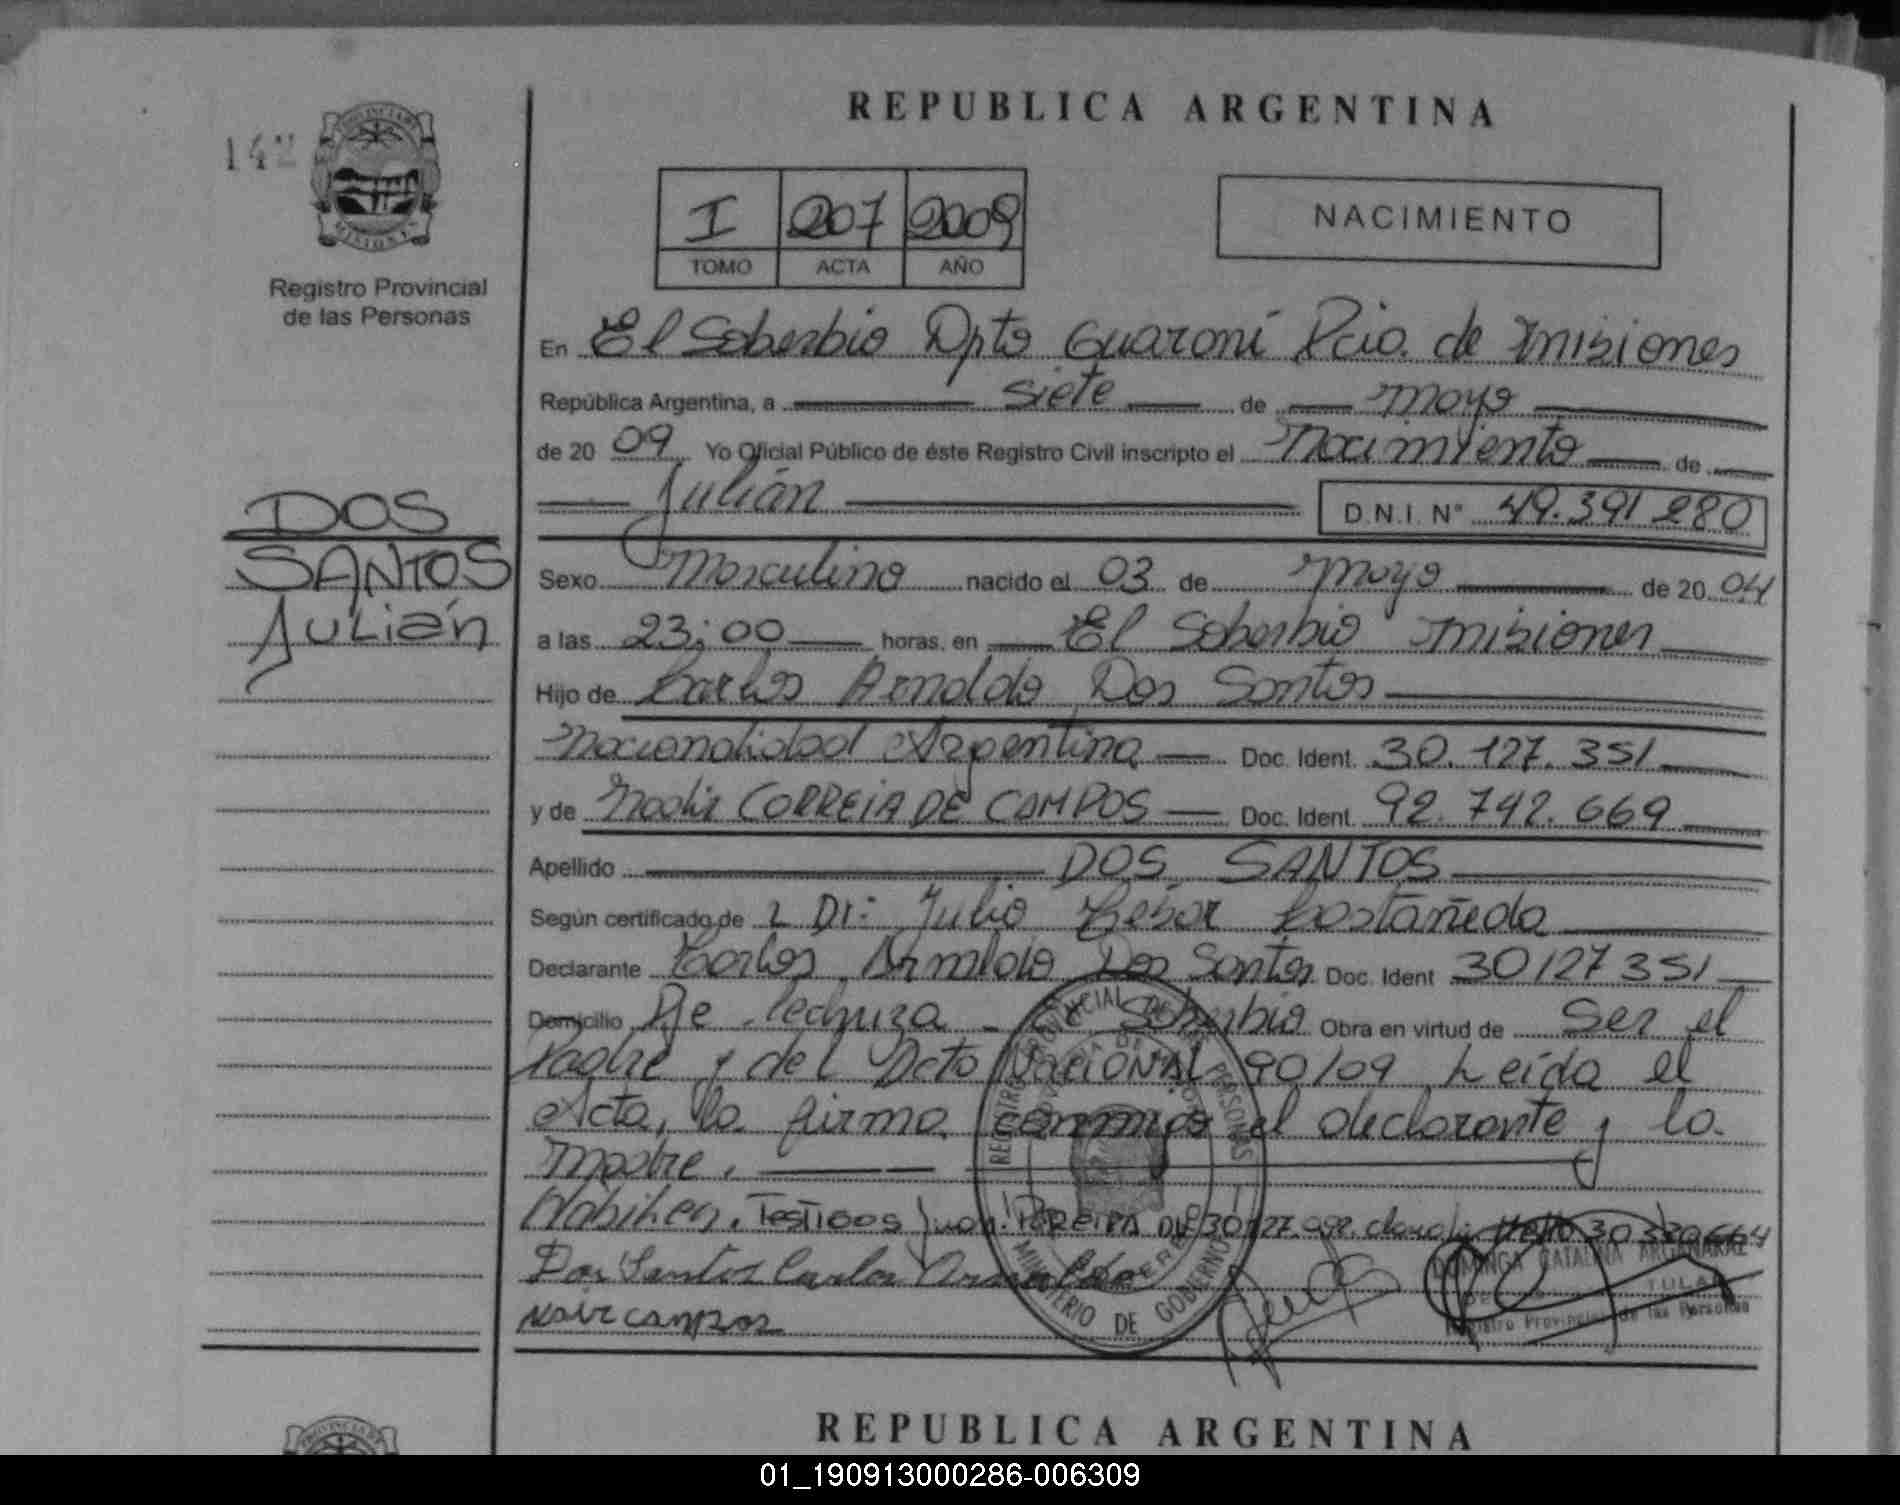 REPUBLICA ARGENTINA
142
PROVINCIA DE
MISIONES
Registro Provincial
de las Personas
I 207 2009
TOMO ACTA AÑO
NACIMIENTO
En El Soberbio Dpto Guaraní Pcia. de Misiones
República Argentina, a siete de mayo
de 2009 Yo Oficial Público de éste Registro Civil inscripto el Nacimiento de
Julián D.N.I. N° 49.391 280
DOS
SANTOS
Julián
Sexo Masculino nacido el 03 de mayo de 2004
a las 23:00 horas, en El Soberbio Misiones
Hijo de Carlos Arnaldo Dos Santos
Nacionalidad Argentina Doc. Ident. 30.127.351
y de Nadir CORREIA DE CAMPOS Doc. Ident. 92.742.669
Apellido DOS SANTOS
Según certificado de Dr: Julio Cesar Castañeda
Declarante Carlos Arnaldo Dos Santos Doc. Ident 30127351
Domicilio Pje Lechuza - Soberbio Obra en virtud de Ser el
Padre y del Dcto NACIONAL 90/09 Leída el
Acta, la firma conmigo el declarante y la
Madre.
Testigos Juan PEREIRA
Dos Santos Carlos Arnaldo
Nair campos
REGISTRO PROVINCIAL DE LAS PERSONAS
MINISTERIO DE GOBIERNO
DOMINGA CATALINA
Registro Provincial de las Personas
REPUBLICA ARGENTINA
01_190913000286-006309